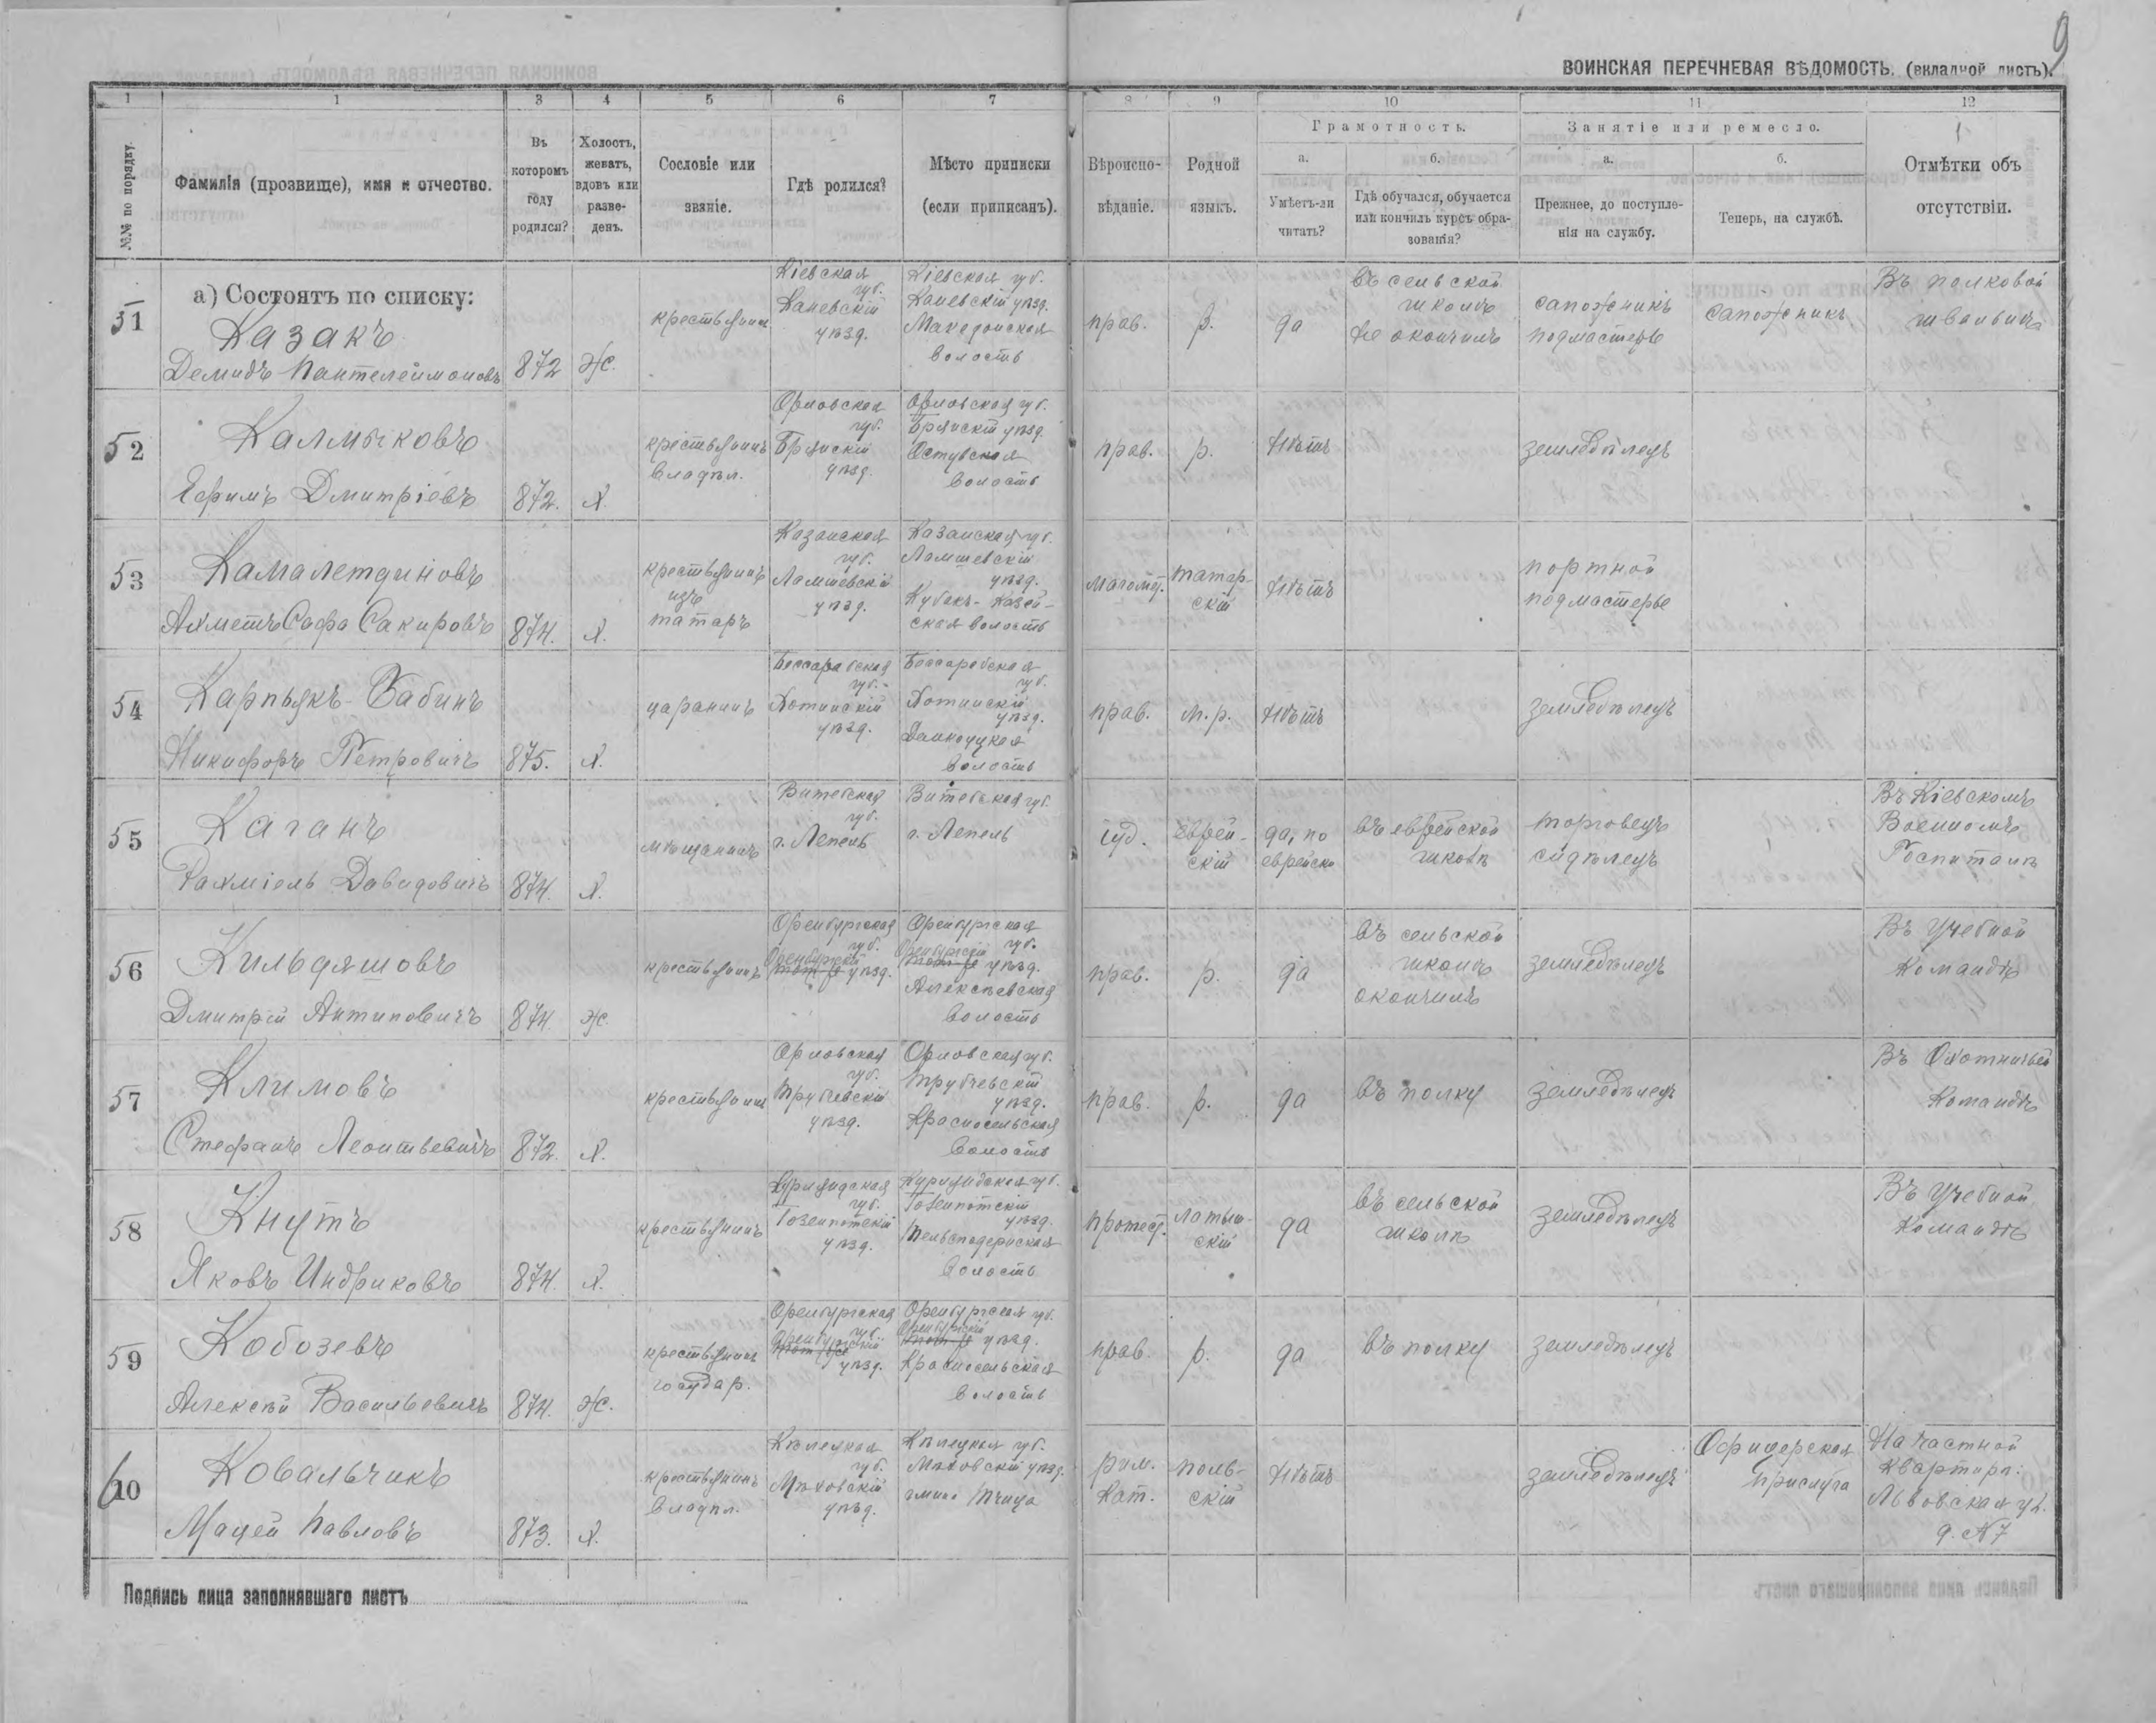 9
ВОИНСКАЯ ПЕРЕЧНЕВАЯ ВѢДОМОСТЬ. (вкладной листъ).
1 1 3 4 5 6 7 8 9 10 11 12
№№ по порядку.
Фамилія (прозвище), имя и отчество.
Въ которомъ году родился?
Холостъ, женатъ, вдовъ или разведенъ.
Сословіе или званіе.
Гдѣ родился?
Мѣсто приписки (если приписанъ).
Вѣроисповѣданіе.
Родной языкъ.
Грамотность.
а. Умѣетъ-ли читать?
б. Гдѣ обучался, обучается или кончилъ курсъ образованія?
Занятіе или ремесло.
а. Прежнее, до поступленія на службу.
б. Теперь, на службѣ.
Отмѣтки объ отсутствіи.
а) Состоятъ по списку:
51 Казакъ Демидъ Пантелеймоновъ 872 Ж. крестьянинъ Кіевская губ. Каневскій уѣзд. Кіевская губ. Каневскій уѣзд. Македонская волость прав. р. да въ сельской школѣ не окончилъ сапожникъ подмастерье сапожникъ Въ полковой швальнѣ
52 Калмыковъ Ефимъ Дмитріевъ 872. Х. крестьянинъ владѣл. Орловская губ. Брянскій уѣзд. Орловская губ. Брянскій уѣзд. волость прав. р. нѣтъ земледѣлецъ
53 Камалетдиновъ Ахметъ Сафа Сакировъ 874. Х. крестьянинъ изъ татаръ Казанская губ. Лаишевскій уѣзд. Казанская губ. Лаишевскій уѣзд. волость магомет. татарскій нѣтъ портной подмастерье
54 Карпьякъ-Бабинъ Никифоръ Петровичъ 875. Х. царанинъ Бессарабская губ. Хотинскій уѣзд. Бессарабская губ. Хотинскій уѣзд. Данкоуцкая волость прав. м.р. нѣтъ земледѣлецъ
55 Каганъ Рахміель Давидовичъ 874. Х. мѣщанинъ Витебская губ. г. Лепель Витебская губ. г. Лепель іуд. еврейскій да, по еврейски въ еврейской школѣ торговецъ сидѣлецъ Въ Кіевскомъ Военномъ Госпиталѣ
56 Кильдяшовъ Дмитрій Антиповичъ 874 Ж. крестьянинъ Оренбургская губ. Оренбургскій уѣзд. Оренбургская губ. Оренбургскій уѣзд. Алексѣевская волость прав. р. да въ сельской школѣ окончилъ земледѣлецъ Въ Учебной Командѣ
57 Климовъ Стефанъ Леонтьевичъ 872. Х. крестьянинъ Орловская губ. Трубчевскій уѣзд. Орловская губ. Трубчевскій уѣзд. Красносельская волость прав. р. да въ полку земледѣлецъ Въ Охотничьей Командѣ
58 Кнутъ Яковъ Индриковъ 874. Х. крестьянинъ Курляндская губ. Газенпотскій уѣзд. Курляндская губ. Газенпотскій уѣзд. волость протест. латышскій да въ сельской школѣ земледѣлецъ Въ Учебной Командѣ
59 Кобозевъ Алексѣй Васильевичъ 874. Ж. крестьянинъ государ. Оренбургская губ. Оренбургскій уѣзд. Оренбургская губ. Оренбургскій уѣзд. Красносельская волость прав. р. да въ полку земледѣлецъ
60 Ковальчикъ Мацей Павловъ 873. Х. крестьянинъ владѣл. Кѣлецкая губ. Мѣховскій уѣзд. Кѣлецкая губ. Мѣховскій уѣзд. гмина рим. кат. польскій нѣтъ земледѣлецъ Офицерская прислуга На частной квартирѣ: Львовская ул. д. №7
Подпись лица заполнявшаго листъ